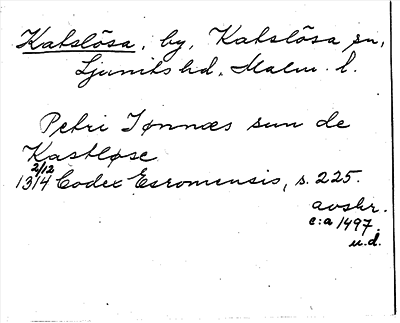 Katslösa, by, Katslösa sn,
Ljunits hd, Malm. l.
Petri Tønnæs sun de
Kastløse
2/12
1314 Codex Esromensis, s. 225.
avskr.
c:a 1497.
u.d.